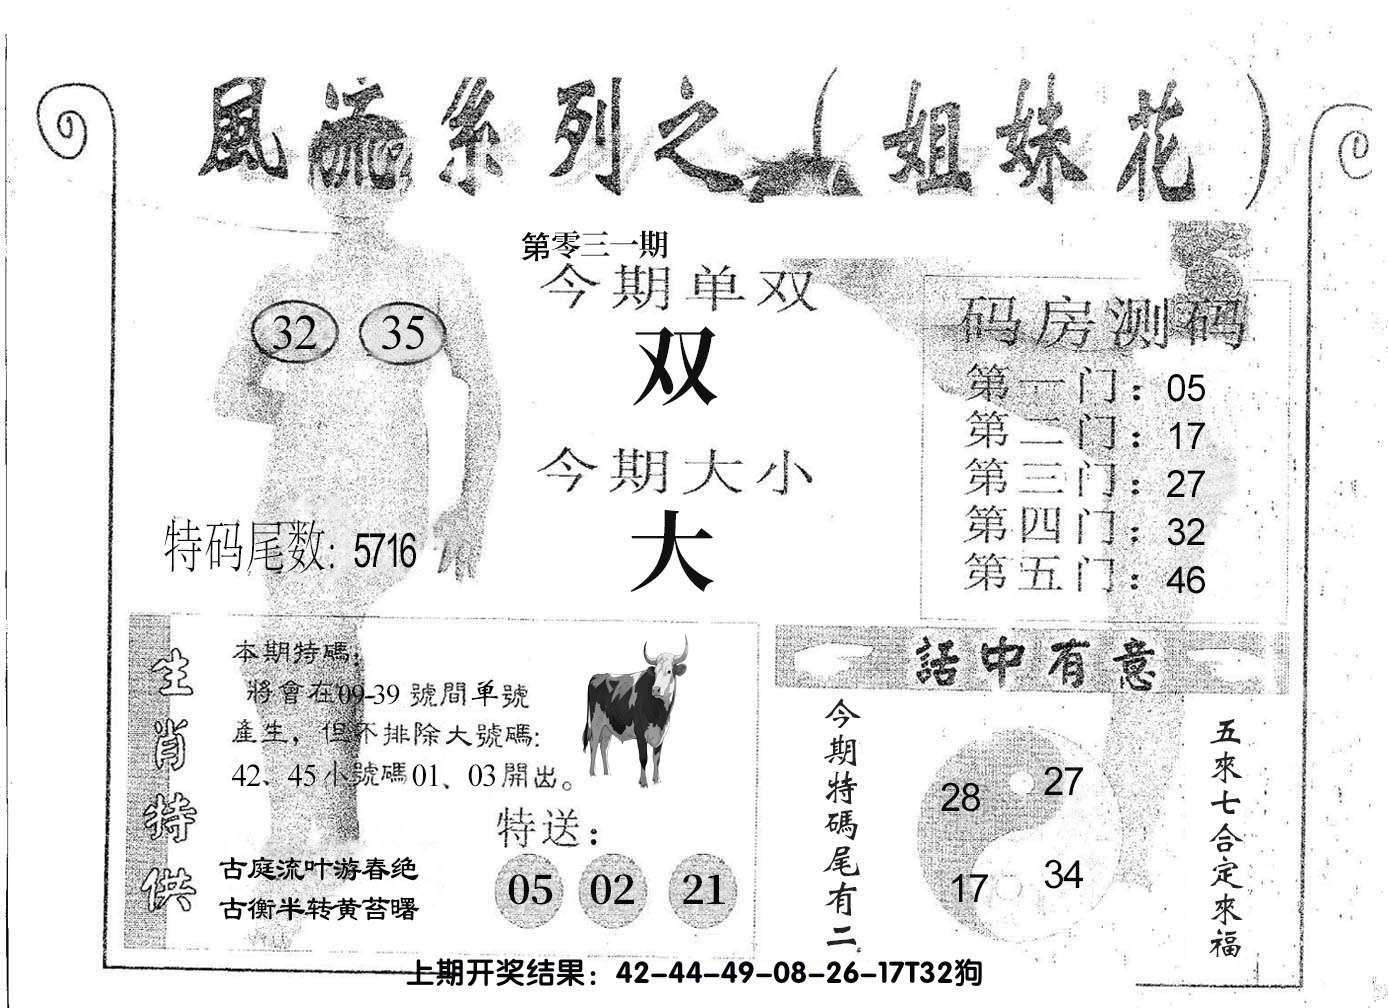 風流系列之（姐妹花）
第零三一期
今期单双
双
32 35
今期大小
大
特码尾数: 5716
码房测码
第一门：05
第二门：17
第三门：27
第四门：32
第五门：46
生肖特供
本期特碼；
將會在09-39 號間单號
產生，但不排除大號碼:
42、45小號碼01、03開出。
特送：
05 02 21
古庭流叶游春绝
古衡半转黄苔曙
話中有意
今期特碼尾有二
28 27
17 34
五來七合定來福
上期开奖结果：42-44-49-08-26-17T32狗